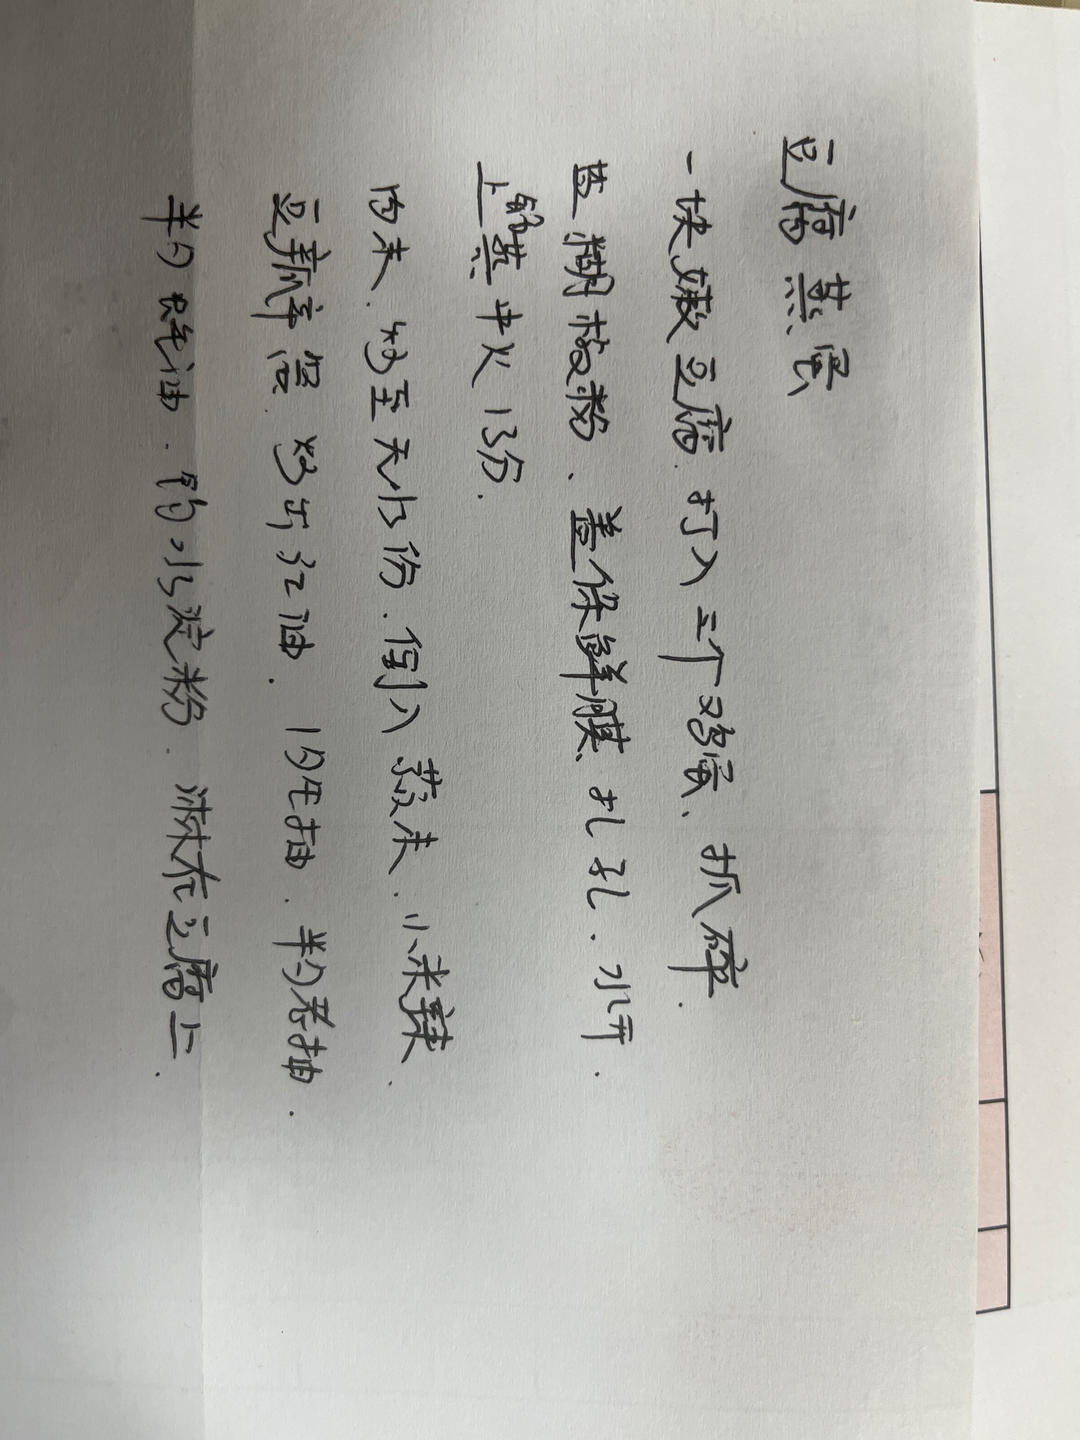 豆腐蒸蛋
一块嫩豆腐.打入三个鸡蛋、抓碎.
盐、胡椒粉、盖保鲜膜、扎孔.水开.
上锅蒸中火13分.
肉末.炒至无水份.倒入蒜末.小米辣.
豆瓣酱.炒出红油.1勺生抽.半勺老抽.
半勺蚝油.勾水淀粉.淋在豆腐上.